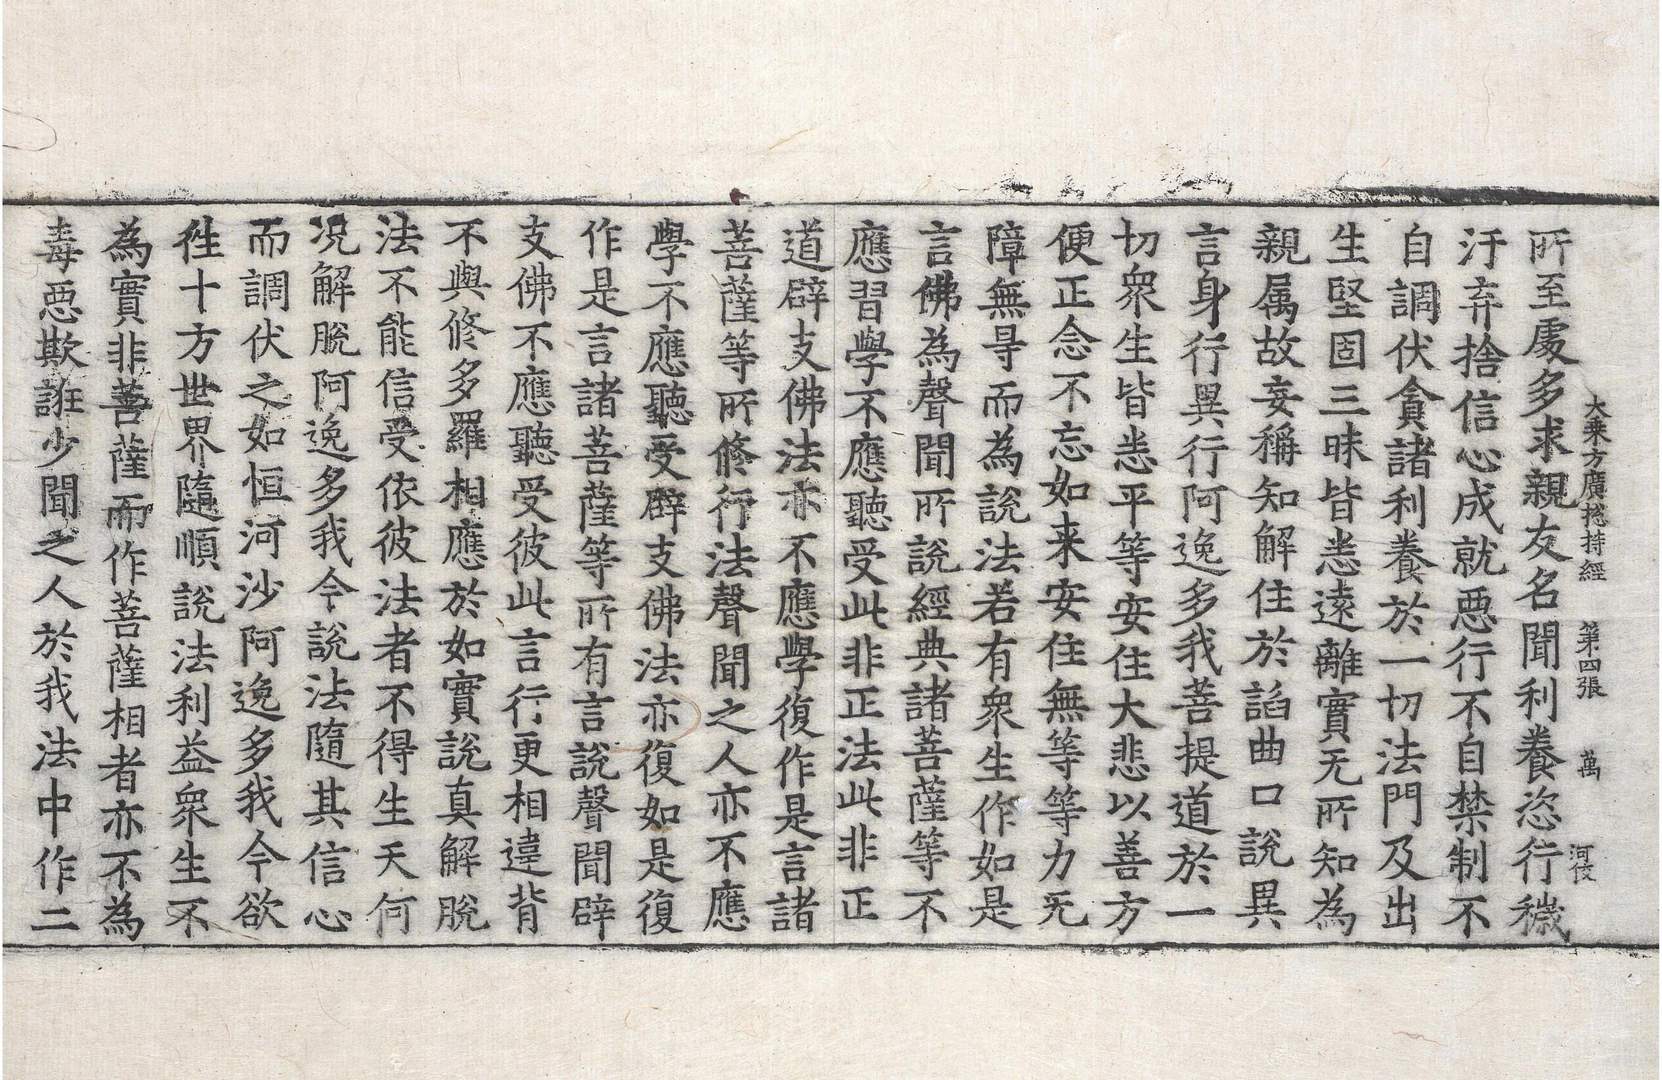 大乗方廣摠持經 第四張 萬 河伎
所至處多求親友名聞利養恣行穢
汙弃捨信心成就惡行不自禁制不
自調伏貪諸利養於一切法門及出
生堅固三昧皆悉遠離實无所知為
親属故妄稱知解住於諂曲口說異
言身行異行阿逸多我菩提道於一
切衆生皆悉平等安住大悲以善方
便正念不忘如来安住無等等力无
障無㝵而為說法若有衆生作如是
言佛為聲聞所說經典諸菩薩等不
應習學不應聽受此非正法此非正
道辟支佛法亦不應學復作是言諸
菩薩等所修行法聲聞之人亦不應
學不應聽受辟支佛法亦復如是復
作是言諸菩薩等所有言說聲聞辟
支佛不應聽受彼此言行更相違背
不與修多羅相應於如實說真解脫
法不能信受依彼法者不得生天何
况解脫阿逸多我今說法隨其信心
而調伏之如恒河沙阿逸多我今欲
徃十方世界隨順說法利益衆生不
為實非菩薩而作菩薩相者亦不為
毒惡欺誑少聞之人於我法中作二